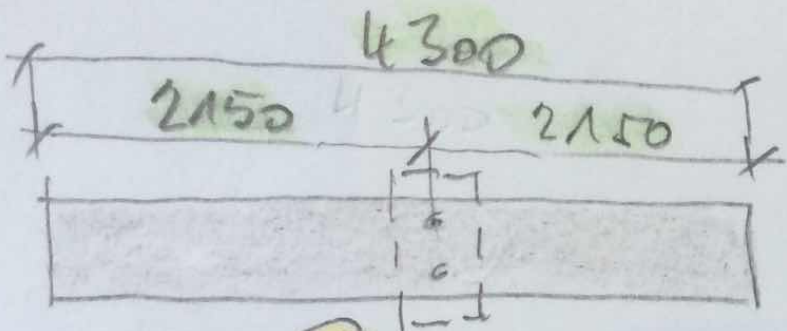 4300
2150 2150